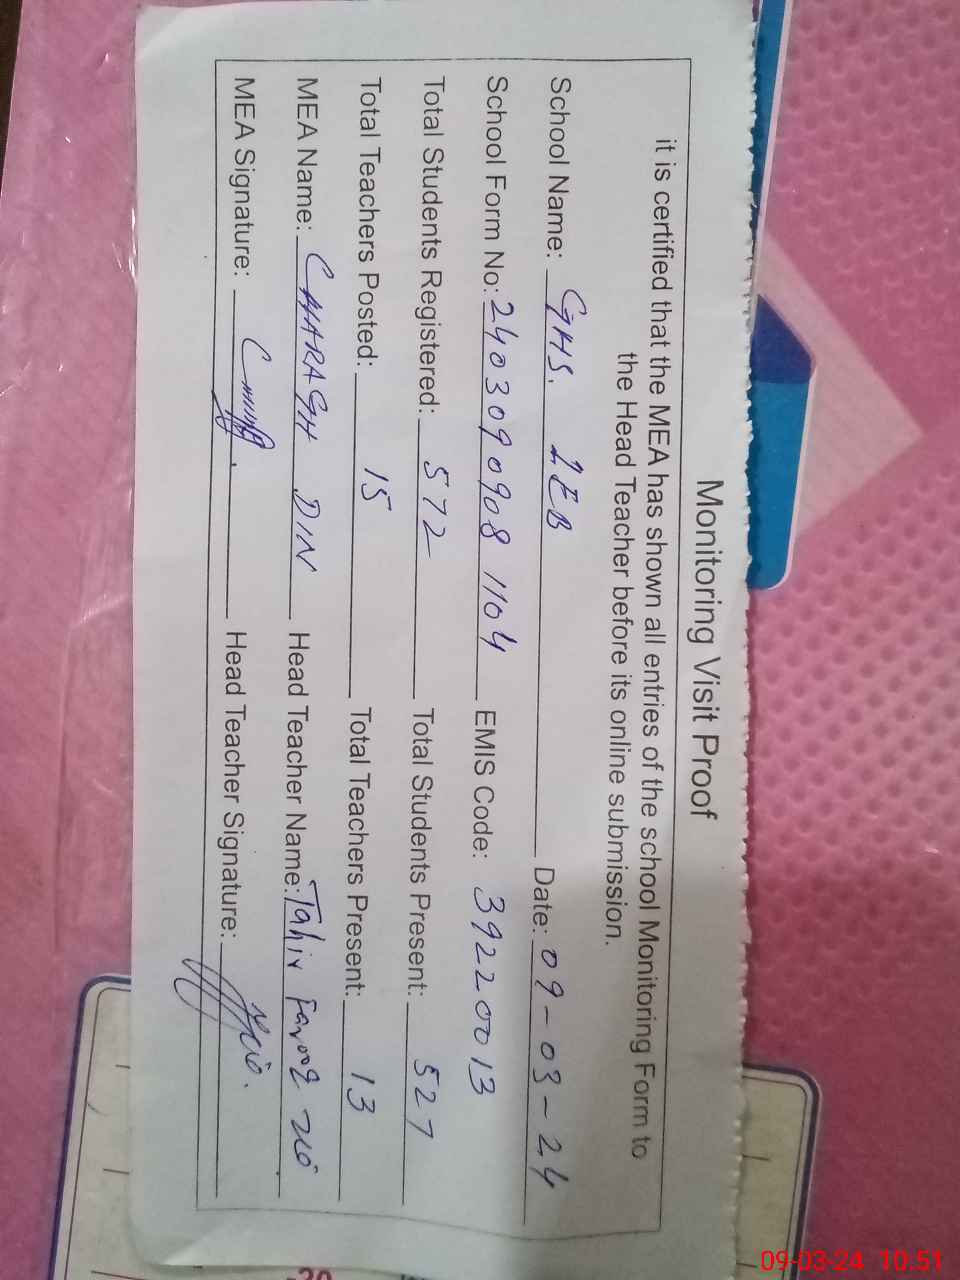 Monitoring Visit Proof
it is certified that the MEA has shown all entries of the school Monitoring Form to
the Head Teacher before its online submission.
School Name: GHS. 2EB Date: 09-03-24
School Form No: 24030909081104 EMIS Code: 39220013
Total Students Registered: 572 Total Students Present: 527
Total Teachers Posted: 15 Total Teachers Present: 13
MEA Name: CHARAGH DIN Head Teacher Name: Tahir Farooq
MEA Signature: Head Teacher Signature:
09-03-24 10:51